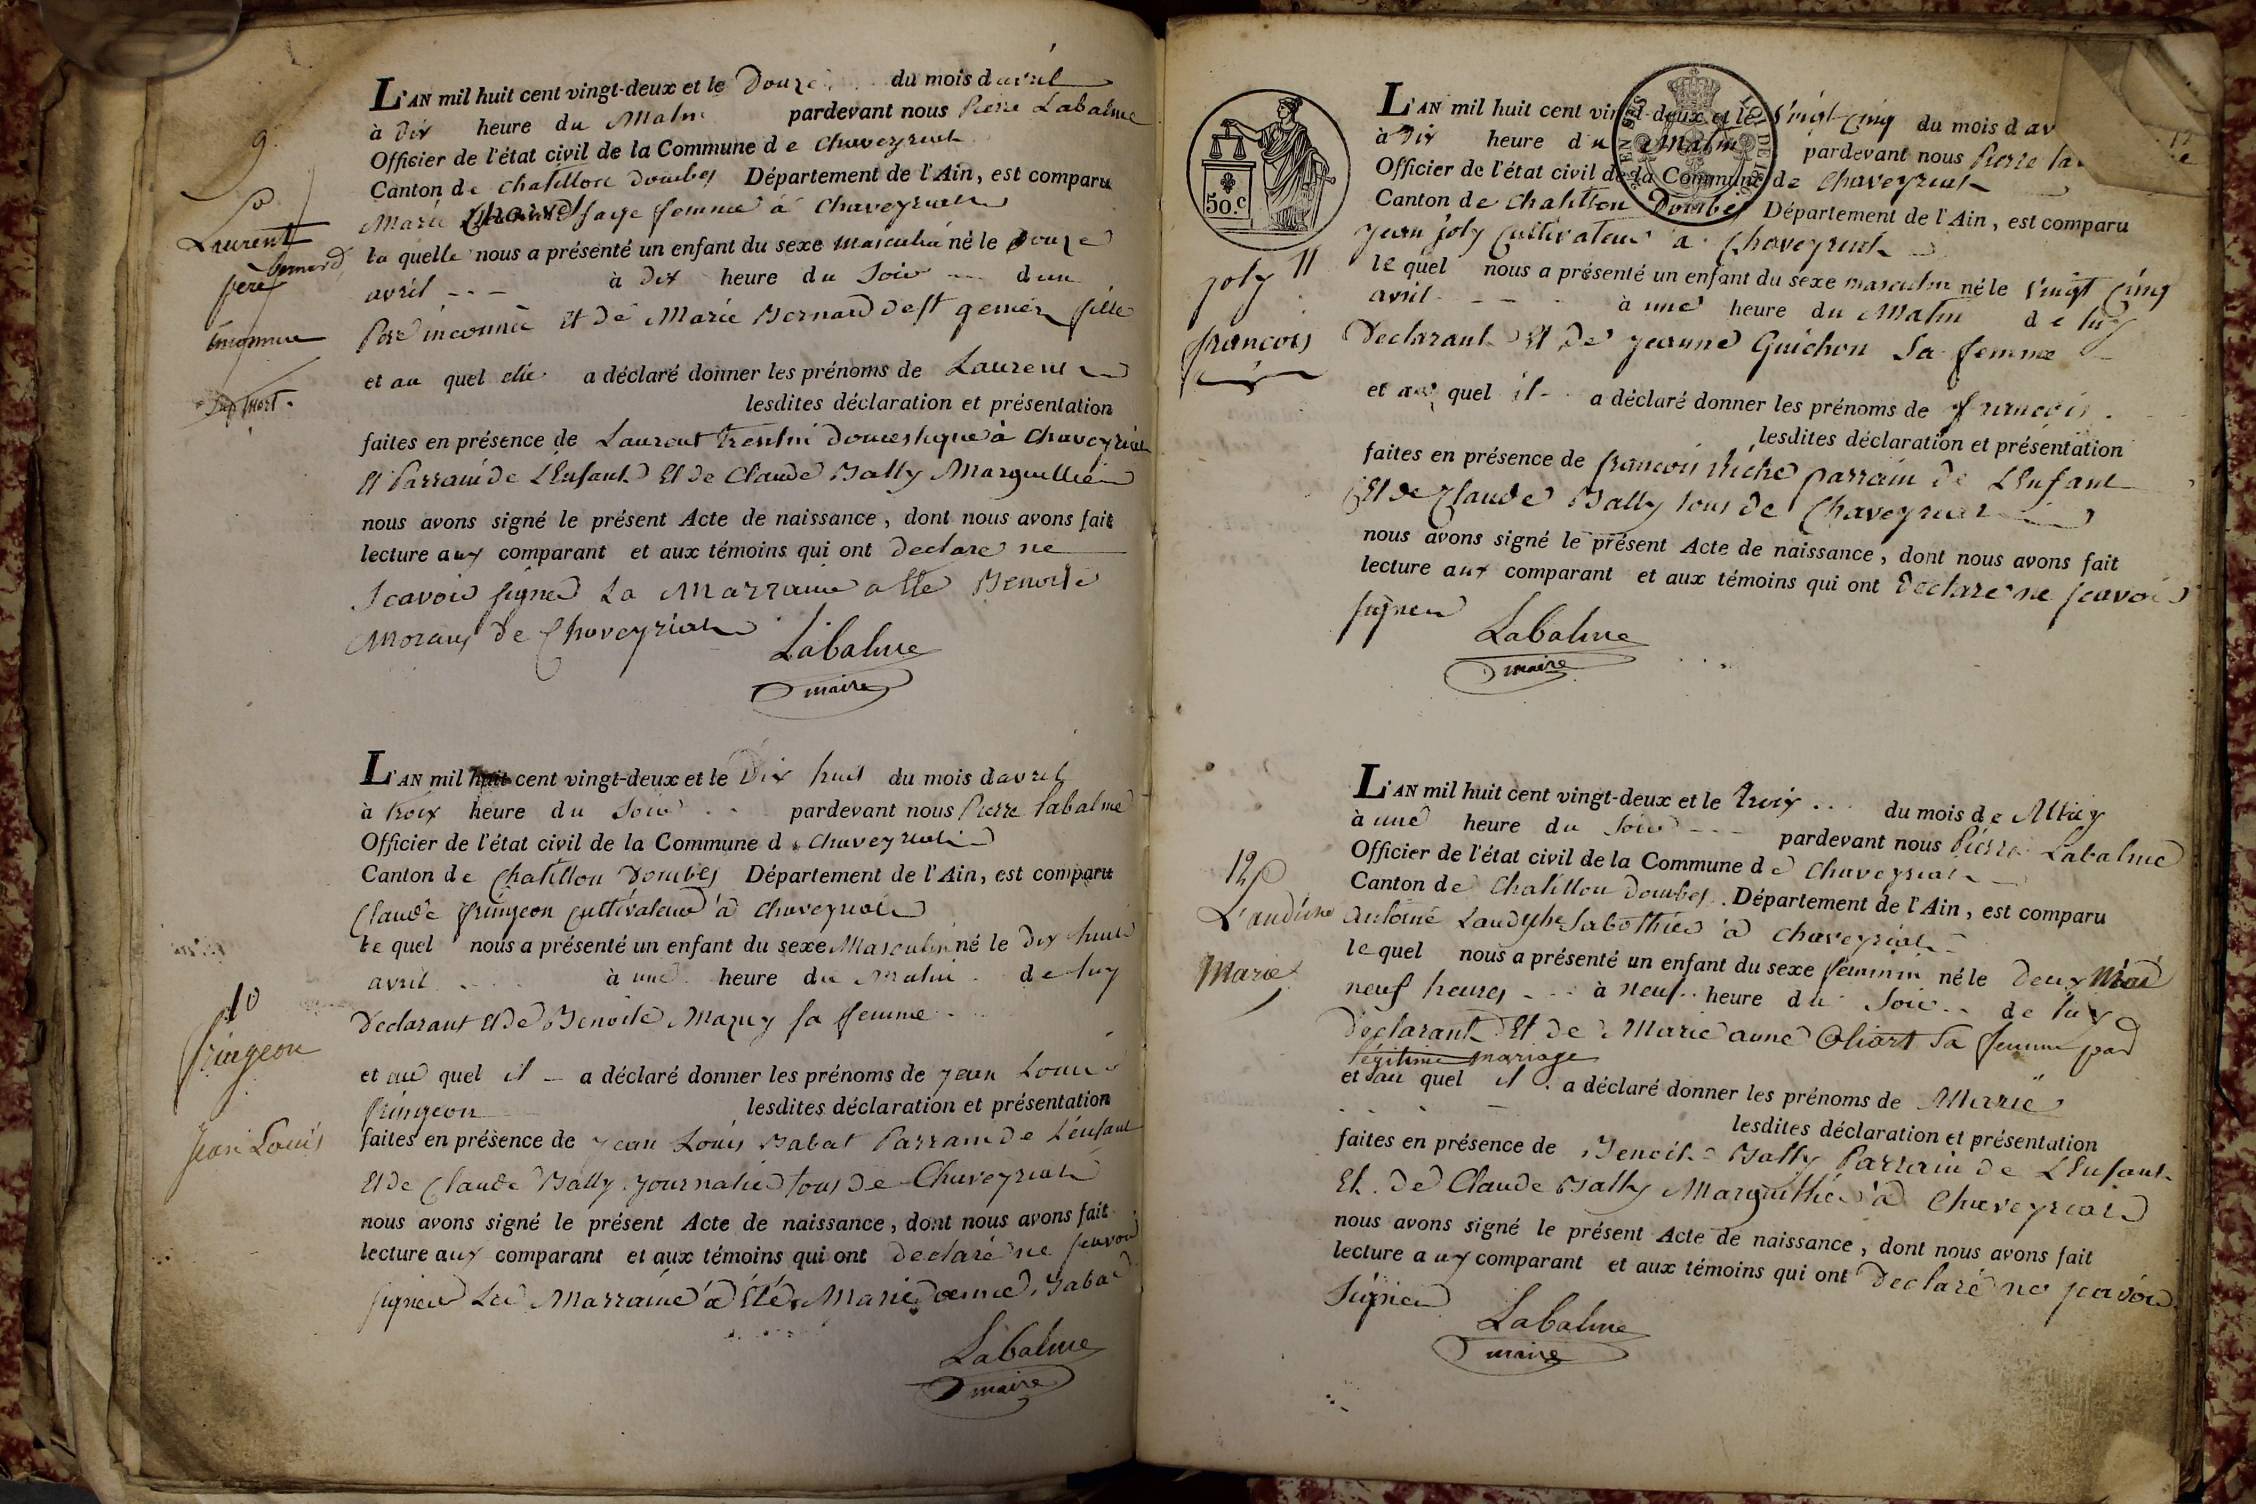 9.
Laurent
bernard
père
inconnue
L'AN mil huit cent vingt-deux et le Douze du mois d avril
à Dix heure du Matin pardevant nous Pierre Labalme
Officier de l'état civil de la Commune d e Chaveyriat
Canton de Chatillon Dombes Département de l'Ain, est comparu
Marie sage femme à Chaveyriat
la quelle nous a présenté un enfant du sexe Masculin né le Douze
avril --- à dix heure du Soir -- d un
Pere inconnue Et de Marie Bernard de st genier fille
et au quel elle a déclaré donner les prénoms de Laurent
lesdites déclaration et présentation
faites en présence de Laurent Domestique à Chaveyriat
Et Parrain de L'Enfant Et de Claude Bally Marguillier
nous avons signé le présent Acte de naissance, dont nous avons fait
lecture aux comparant et aux témoins qui ont declaré ne
Scavoir signer La Marraine a été Benoite
Morand de Chaveyriat
Labalme
maire
10
fringeon
Jean Louis
L'AN mil huit cent vingt-deux et le Dix huit du mois d avril
à troix heure du Soir pardevant nous Pierre labalme
Officier de l'état civil de la Commune d e Chaveyriat
Canton de Chatillon Dombes Département de l'Ain, est comparu
Claude fringeon Cultivateur à Chaveyriat
le quel nous a présenté un enfant du sexe Masculin né le Dix huit
avril à une heure du Matin de luy
Declarant Et De Benoite Mazuy sa femme
et au quel il - a déclaré donner les prénoms de jean Louis
fringeon lesdites déclaration et présentation
faites en présence de jean Louis Babat Parrain de L'enfant
Et De Claude Bally journalier tous de Chaveyriat
nous avons signé le présent Acte de naissance, dont nous avons fait
lecture aux comparant et aux témoins qui ont declaré ne scavoir
signer La Marraine a Eté Marie Babat
Labalme
maire
50.c
joly 11
françois
L'AN mil huit cent vingt-deux et le Vingt Cinq du mois d av
à Dix heure du Matin pardevant nous Pierre la
Officier de l'état civil de la Commune de Chaveyriat
Canton de Chatillon Dombes Département de l'Ain, est comparu
jean joly Cultivateur à Chaveyriat
le quel nous a présenté un enfant du sexe masculin né le Vingt Cinq
avril - - - à une heure du Matin de luy
Declarant Et De jeanne Guichon Sa femme
et au quel il - a déclaré donner les prénoms de françois
lesdites déclaration et présentation
faites en présence de françois parrain de L'Enfant
Et de Claude Bally tous de Chaveyriat
nous avons signé le présent Acte de naissance, dont nous avons fait
lecture aux comparant et aux témoins qui ont Declaré ne scavoir
signer
Labalme
maire
12
Marie
L'AN mil huit cent vingt-deux et le troix du mois de May
à une heure du Soir -- pardevant nous Pierre Labalme
Officier de l'état civil de la Commune de Chaveyriat
Canton de Chatillon Dombes. Département de l'Ain, est comparu
Antoine Sabothier à Chaveyriat
le quel nous a présenté un enfant du sexe féminin né le Deux Mai
neuf heures --- à neuf heure du Soir de luy
declarant Et de Marie anne Sa femme par
légitime mariage
et au quel il a déclaré donner les prénoms de Marie
lesdites déclaration et présentation
faites en présence de Benoit Bally Parrain de L'Enfant
Et de Claude Bally Marguillier à Chaveyriat
nous avons signé le présent Acte de naissance, dont nous avons fait
lecture aux comparant et aux témoins qui ont Declaré ne scavoir
Signer
Labalme
maire